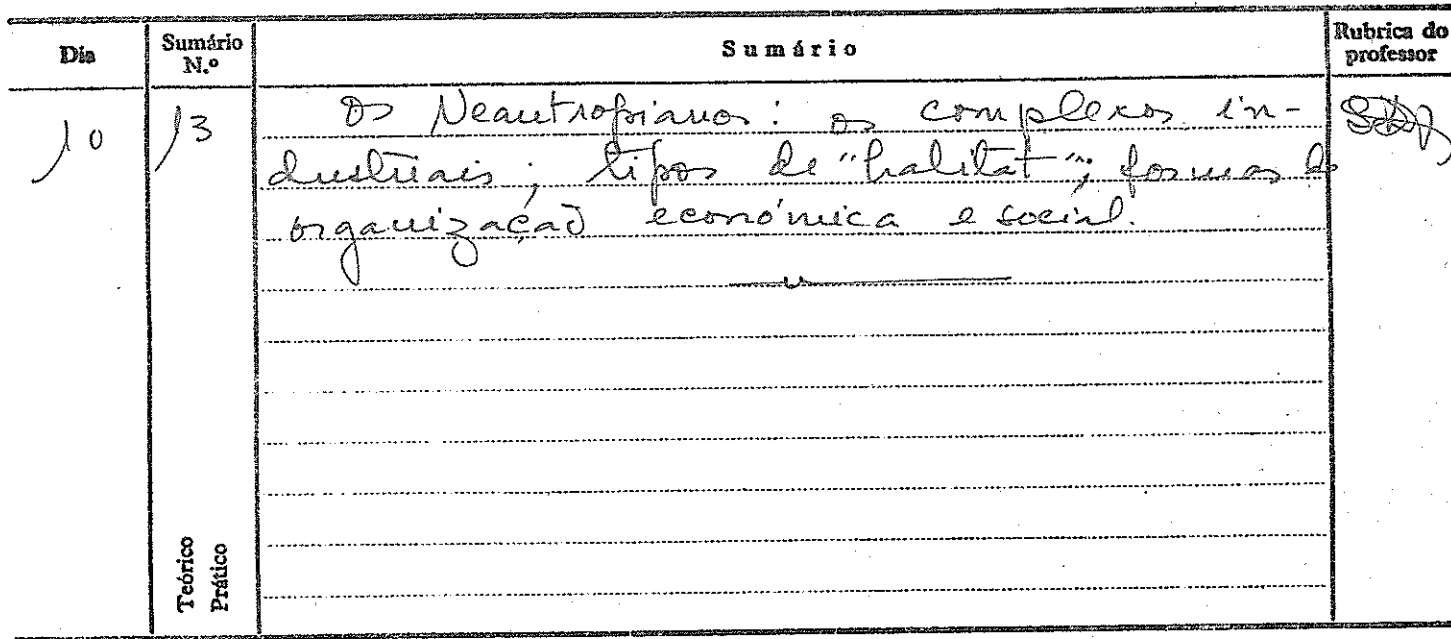 Dia Sumário N.º Sumário Rubrica do professor
10 13 Os Neantropianos: os complexos in-
dustriais; tipos de "habitat"; formas de
organização económica e social.
Teórico
Prático